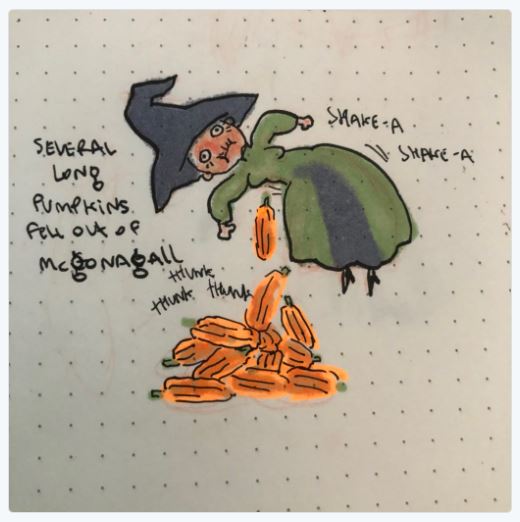 SEVERAL
LONG
PUMPKINS
FELL OUT OF
McGONAGALL
SHAKE-A
SHAKE-A
THUNK
THUNK THUNK